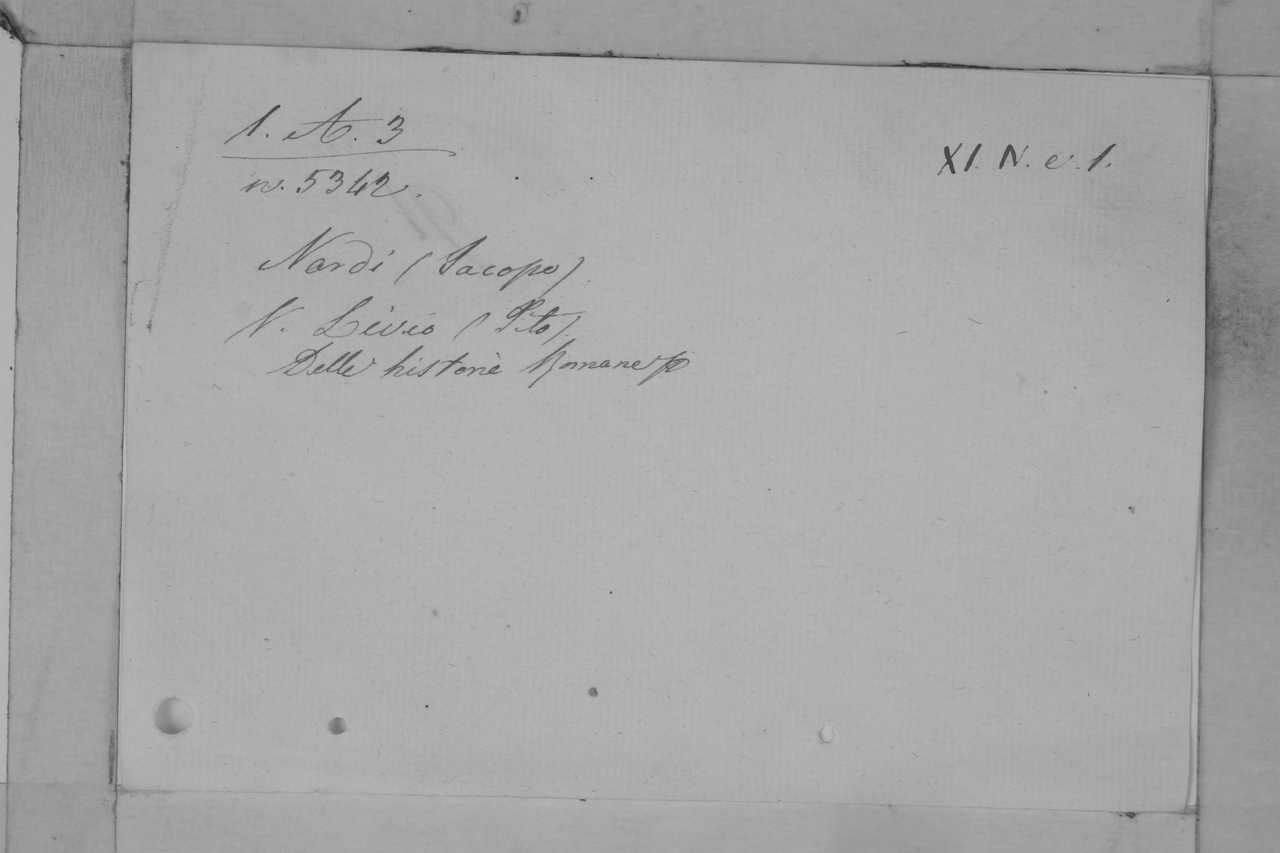 1. A. 3
XI. N. e. 1.
n. 5342.
Nardi (Jacopo)
V. Livio (Tito).
Delle historie Romane